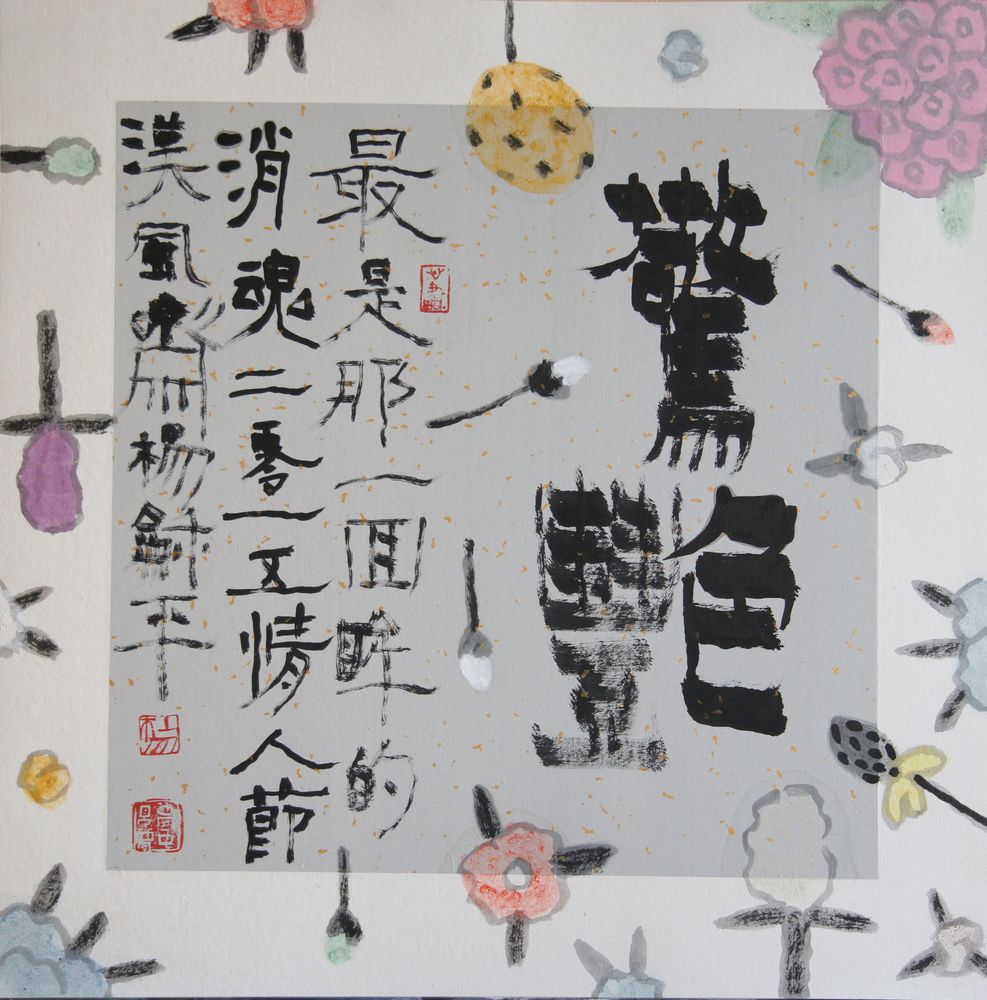 驚艷
最是那一回眸的
消魂二零一五情人節
漢風齋楊劍平
楊